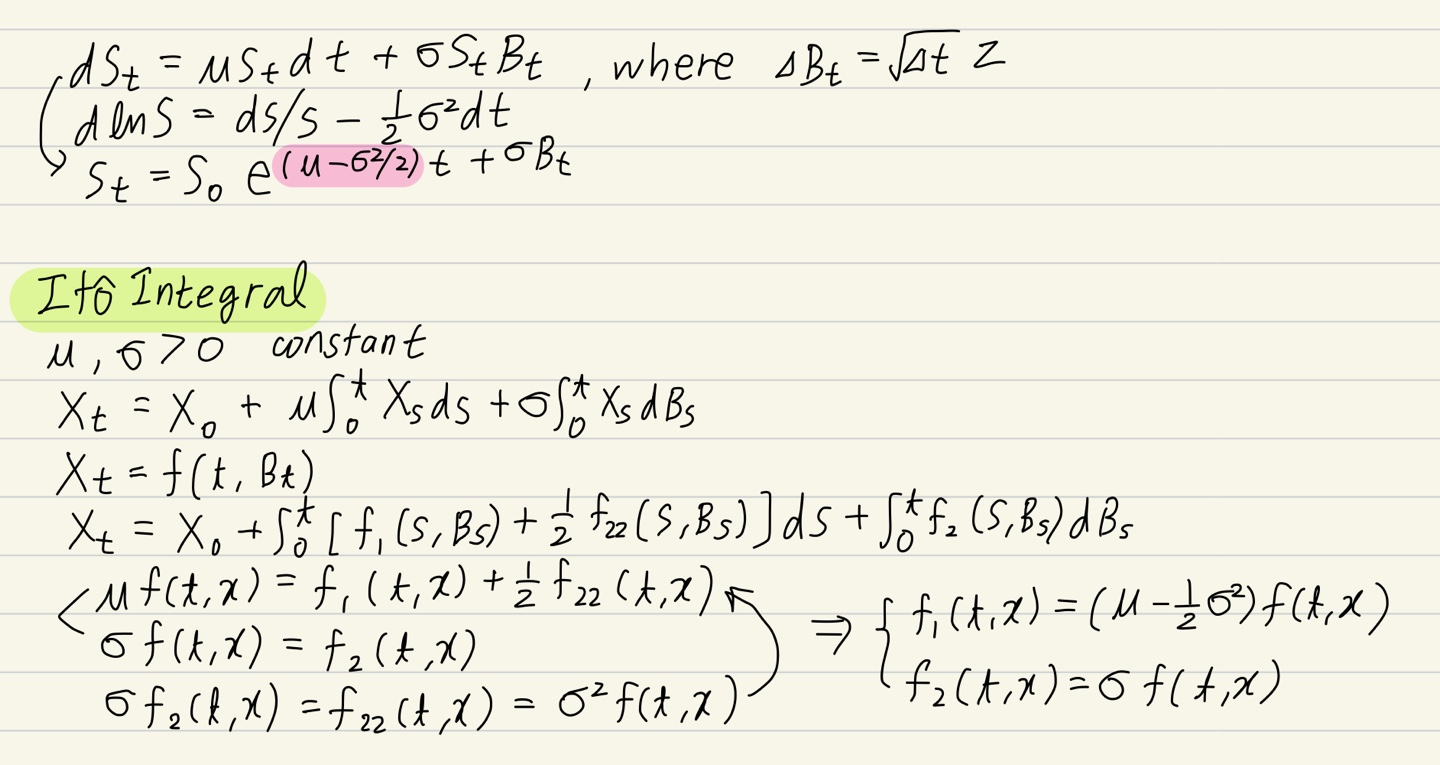 dS_t = μS_t dt + σS_t B_t , where ΔB_t = √Δt Z
d ln S = ds/s − 1/2 σ² dt
S_t = S_0 e^{(μ−σ²/2)t + σB_t}
Itô Integral
μ, σ > 0 constant
X_t = X_0 + μ∫_0^t X_s ds + σ∫_0^t X_s dB_s
X_t = f(t, B_t)
X_t = X_0 + ∫_0^t [f_1(s, B_s) + 1/2 f_22(s, B_s)] ds + ∫_0^t f_2(s, B_s) dB_s
μ f(t, x) = f_1(t, x) + 1/2 f_22(t, x)
σ f(t, x) = f_2(t, x)
σ f_2(t, x) = f_22(t, x) = σ² f(t, x)
⇒ { f_1(t, x) = (μ − 1/2 σ²) f(t, x)
f_2(t, x) = σ f(t, x)